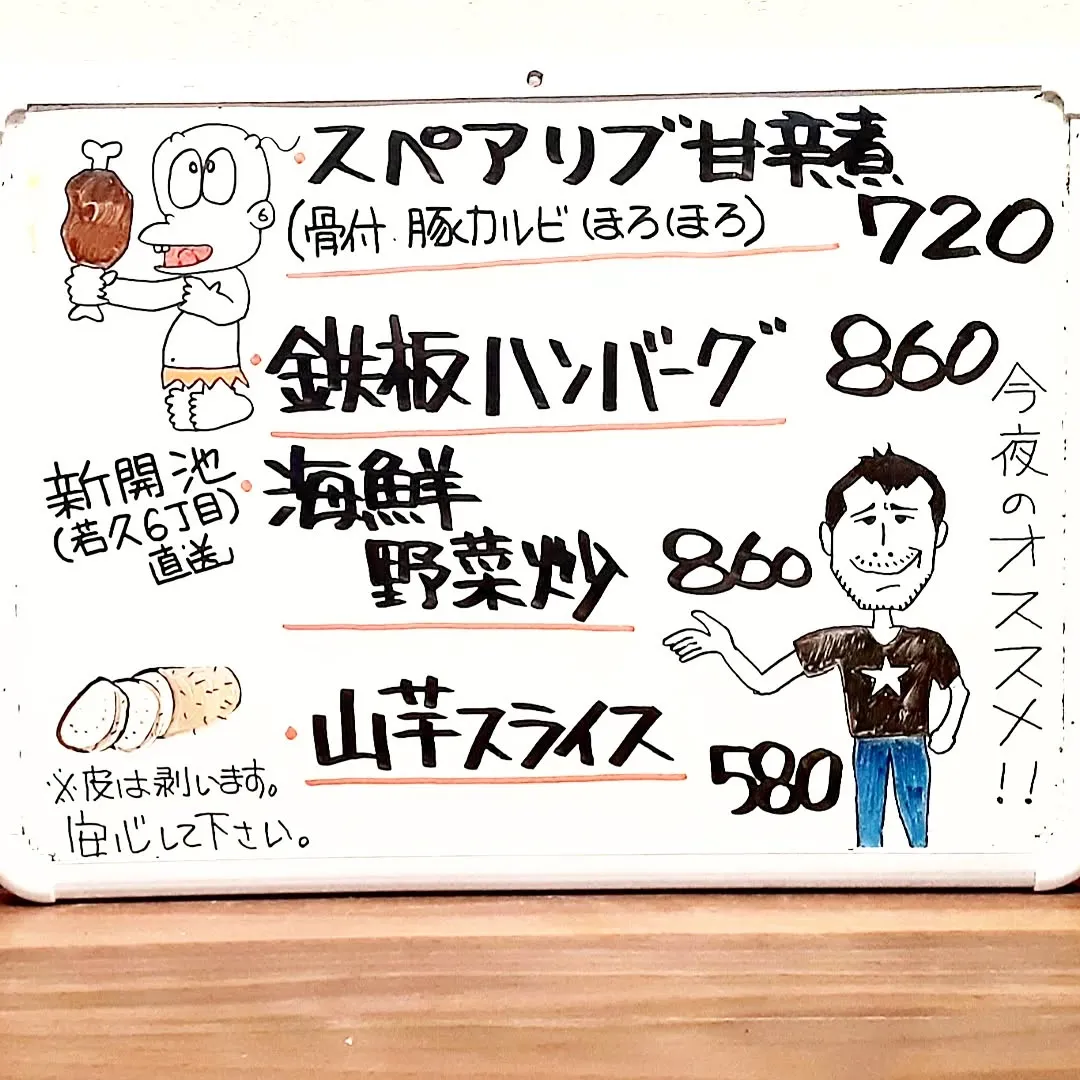 ・スペアリブ甘辛煮
(骨付.豚カルビほろほろ) 720
・鉄板ハンバーグ 860
新開池
(若久6丁目)
直送」
・海鮮
野菜炒 860
・山芋スライス
580
※皮は剥います。
安心して下さい。
今夜のオススメ!!